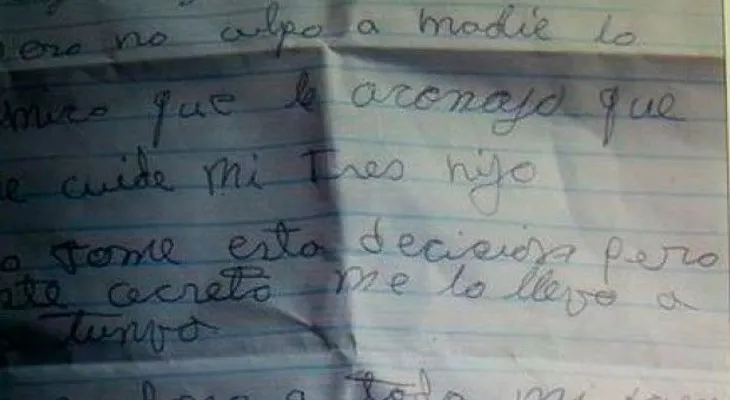 ero no culpo a madie lo
mico que le aconsajo que
e cuide mi tres hijo
o tome esta decicion pero
te cecreto me lo llevo a
tunva
a toda mi